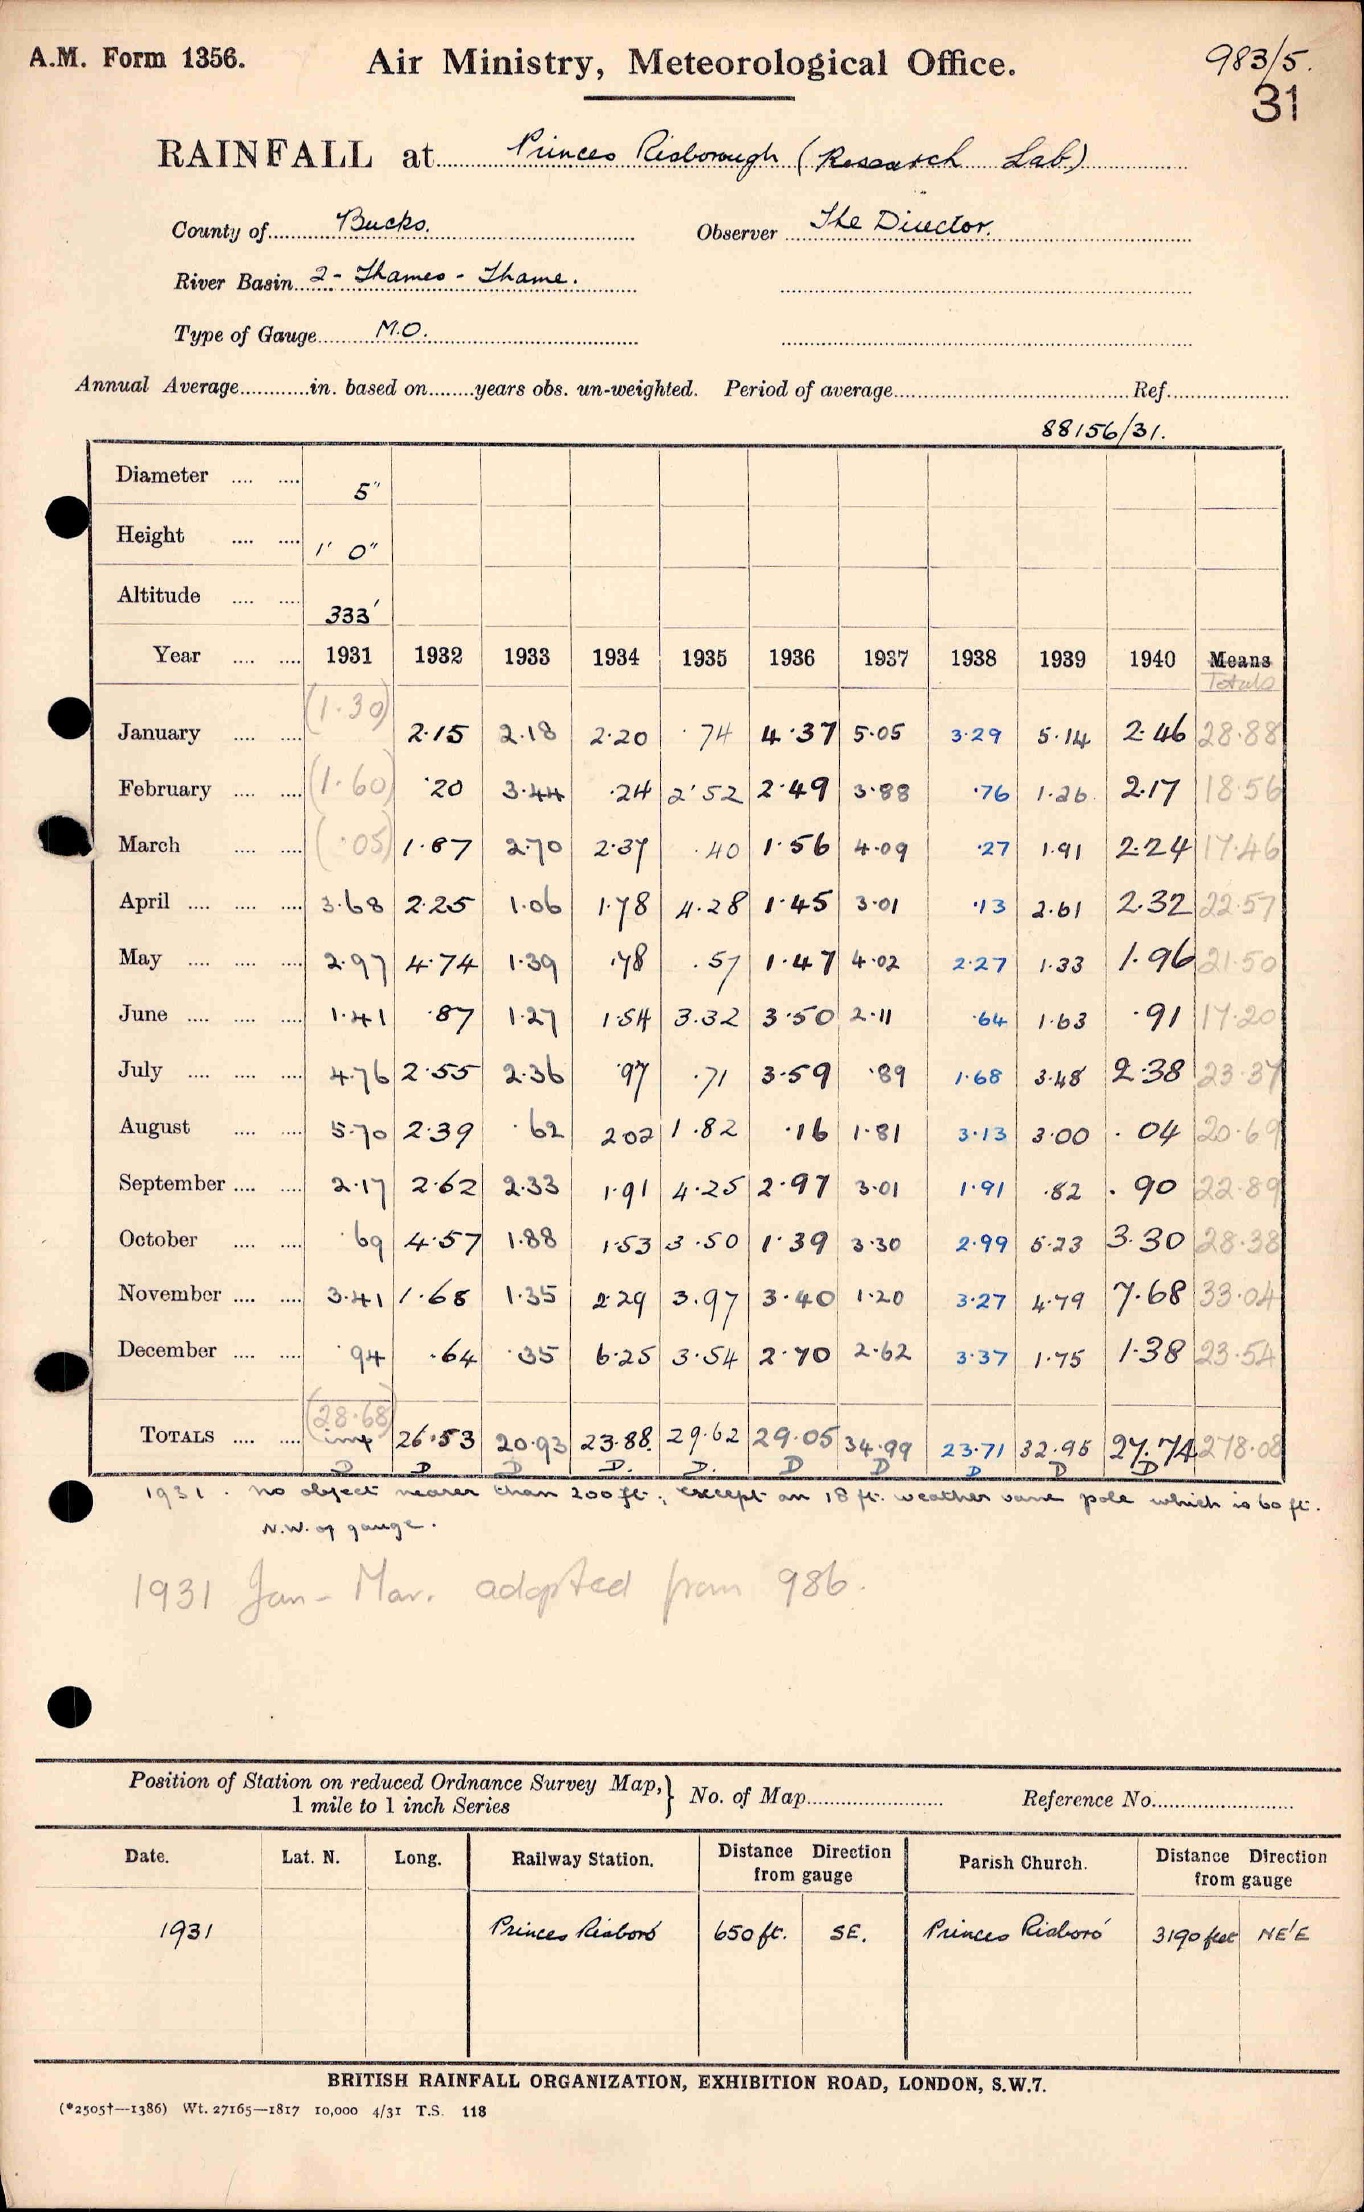 A.M. Form 1356. Air Ministry, Meteorological Office. 983/5.
31
RAINFALL at Princes Risborough (Research Lab.)
County of Bucks. Observer The Director.
River Basin 2 - Thames - Thame.
Type of Gauge M.O.
Annual Average............in. based on........years obs. un-weighted. Period of average........................................Ref.....................
88156/31.
Diameter .... .... 5"
Height .... .... 1' 0"
Altitude .... .... 333'
Year .... .... 1931 1932 1933 1934 1935 1936 1937 1938 1939 1940 Means
Totals
January .... .... (1.30) 2.15 2.18 2.20 .74 4.37 5.05 3.29 5.14 2.46 28.88
February .... .... (1.60) .20 3.44 .24 2.52 2.49 3.88 .76 1.26 2.17 18.56
March .... .... (.05) 1.87 2.70 2.37 .40 1.56 4.09 .27 1.91 2.24 17.46
April .... .... .... 3.68 2.25 1.06 1.78 4.28 1.45 3.01 .13 2.61 2.32 22.57
May .... .... .... 2.97 4.74 1.39 .78 .57 1.47 4.02 2.27 1.33 1.96 21.50
June .... .... .... 1.41 .87 1.27 1.54 3.32 3.50 2.11 .64 1.63 .91 17.20
July .... .... .... 4.76 2.55 2.36 .97 .71 3.59 .89 1.68 3.48 2.38 23.37
August .... .... 5.70 2.39 .62 2.02 1.82 .16 1.81 3.13 3.00 .04 20.69
September .... .... 2.17 2.62 2.33 1.91 4.25 2.97 3.01 1.91 .82 .90 22.89
October .... .... .69 4.57 1.88 1.53 3.50 1.39 3.30 2.99 5.23 3.30 28.38
November .... .... 3.41 1.68 1.35 2.29 3.97 3.40 1.20 3.27 4.79 7.68 33.04
December .... .... .94 .64 .35 6.25 3.54 2.70 2.62 3.37 1.75 1.38 23.54
(28.68)
TOTALS .... .... imp 26.53 20.93 23.88. 29.62 29.05 34.99 23.71 32.95 27.74 278.08
D D D D. D. D D D D D
1931. No object nearer than 200 ft., except an 18 ft. weather vane pole which is 60 ft.
N.W. of gauge.
1931 Jan - Mar. adopted from 986.
Position of Station on reduced Ordnance Survey Map,} No. of Map........................ Reference No.........................
1 mile to 1 inch Series
Date. Lat. N. Long. Railway Station. Distance Direction from gauge Parish Church. Distance Direction from gauge
1931 Princes Risboro' 650 ft. SE. Princes Risboro' 3190 feet NE'E
BRITISH RAINFALL ORGANIZATION, EXHIBITION ROAD, LONDON, S.W.7.
(*2505†—1386) Wt. 27165—1817 10,000 4/31 T.S. 118